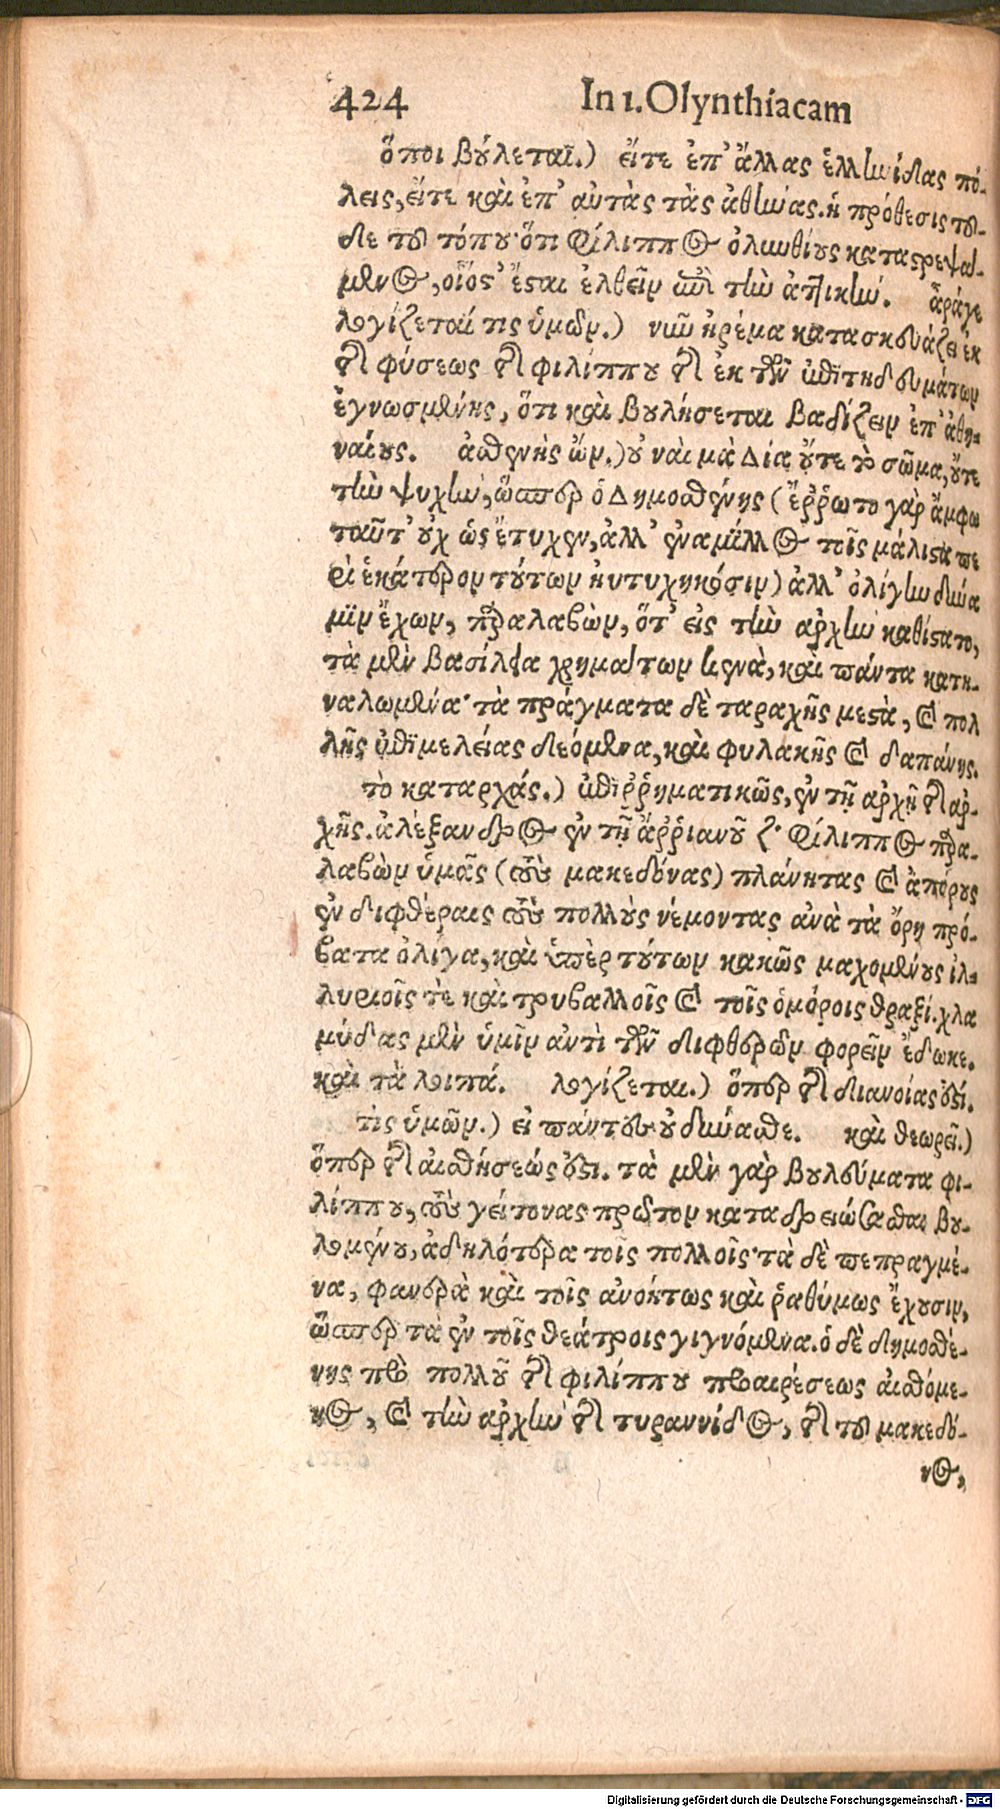 424 In 1. Olynthiacam
ὅποι βούλεται.) εἴτε ἐπ' ἄλλας ἑλληνίδας πό-
λεις, εἴτε καὶ ἐπ' αὐτὰς τὰς ἀθήνας. ἡ πρόθεσις τοῦ-
δε τοῦ τόπου· ὅτι Φίλιππος ὀλυνθίους καταστρεψά-
μενος, οἷός τ' ἔσται ἐλθεῖν ἐπὶ τὴν ἀττικήν. ἆράγε
λογίζεταί τις ὑμῶν.) νῦν ἠρέμα κατασκευάζει ἐκ
τῆς φύσεως τῆς φιλίππου τῆς ἐκ τῶν ἐπιτηδευμάτων
ἐγνωσμένης, ὅτι καὶ βουλήσεται βαδίζειν ἐπ' ἀθη-
ναίους. ἀσθενὴς ὤν.) οὐ ναὶ μὰ Δία οὔτε τὸ σῶμα, οὔτε
τὴν ψυχήν, ὥσπερ ὁ Δημοσθένης (ἔῤῥωτο γὰρ ἄμφω
ταῦτ' οὐχ ὡς ἔτυχεν, ἀλλ' ἐναμίλλος τοῖς μάλιστα πε
ρὶ ἑκάτερον τούτων ηὐτυχηκόσιν) ἀλλ' ὀλίγην δύνα
μιν ἔχων, παραλαβὼν, ὅτ' εἰς τὴν ἀρχὴν καθίστατο,
τὰ μὲν βασίλεια χρημάτων κενὰ, καὶ πάντα κατη-
ναλωμένα· τὰ πράγματα δὲ ταραχῆς μεστὰ, καὶ πολ
λῆς ἐπιμελείας δεόμενα, καὶ φυλακῆς καὶ δαπάνης.
τὸ καταρχάς.) ἐπιῤῥηματικῶς, ἐν τῇ ἀρχῇ τῆς ἀρ-
χῆς. ἀλέξανδρος ἐν τῇ ἀῤῥιανοῦ ζ· Φίλιππος παρα-
λαβὼν ὑμᾶς (τοὺς μακεδόνας) πλάνητας καὶ ἀπόρους
ἐν διφθέραις τοὺς πολλοὺς νέμοντας ἀνὰ τὰ ὄρη πρό-
βατα ὀλίγα, καὶ ὑπὲρ τούτων κακῶς μαχομένους ἰλ-
λυριοῖς τὲ καὶ τριβαλλοῖς καὶ τοῖς ὁμόροις θραξί. χλα
μύδας μὲν ὑμῖν ἀντὶ τῶν διφθερῶν φορεῖν ἔδωκε.
καὶ τὰ λοιπά. λογίζεται.) ὅπερ τῆς διανοίας ἐστί.
τὶς ὑμῶν.) εἰ πάντες οὐ δύνασθε. καὶ θεωρεῖ.)
ὅπερ τῆς αἰσθήσεώς ἐστι. τὰ μὲν γὰρ βουλεύματα φι-
λίππου, τοὺς γείτονας πρῶτον καταδρ<br>
λομένου, ἀδηλότερα τοῖς πολλοῖς· τὰ δὲ πεπραγμέ-
να, φανερὰ καὶ τοῖς ἀνοήτως καὶ ῥαθύμως ἔχουσιν,
ὥσπερ τὰ ἐν τοῖς θεάτροις γιγνόμενα. ὁ δὲ δημοσθέ-
νης πρὸ πολλοῦ τῆς φιλίππου προαιρέσεως αἰσθόμε-
νος, καὶ τὴν ἀρχὴν τῆς τυραννίδος, τῆς τοῦ μακεδό-
νος,
Digitalisierung gefördert durch die Deutsche Forschungsgemeinschaft - DFG